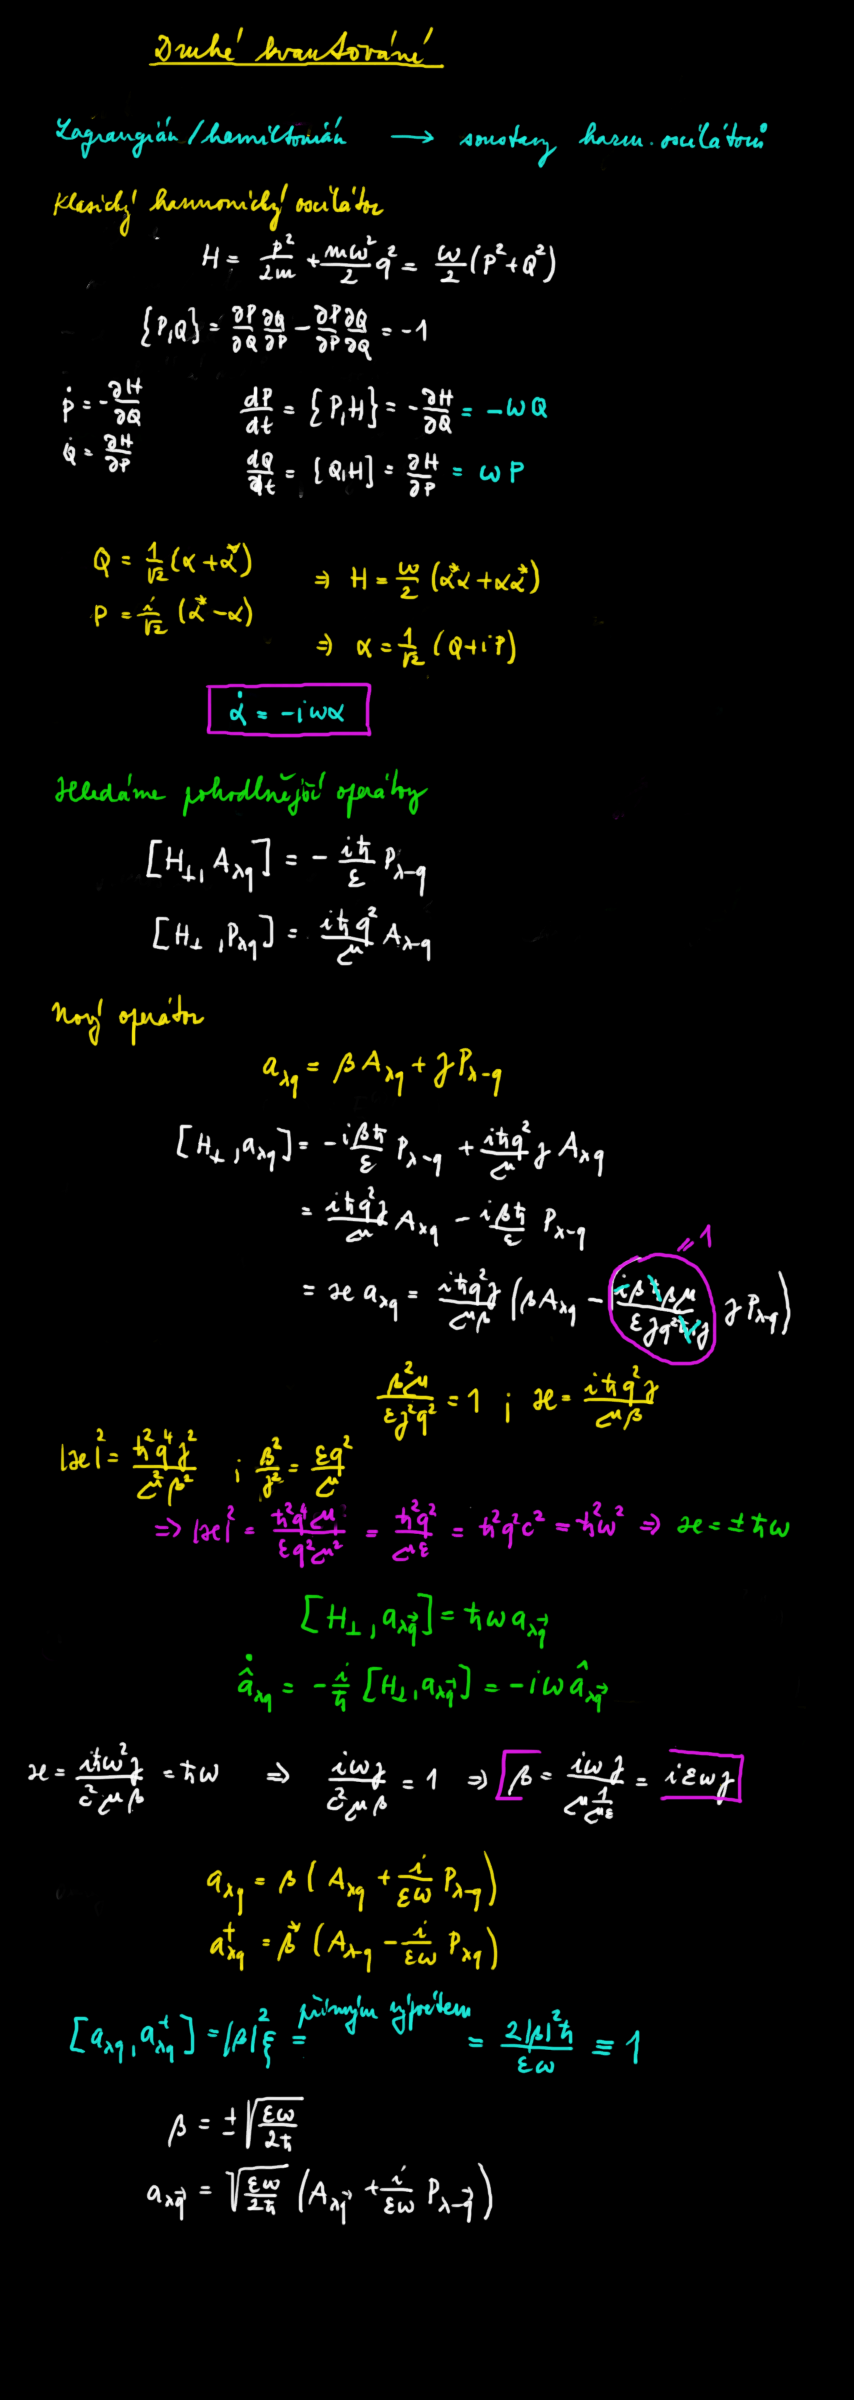 Druhé kvantování
Lagrangián/hamiltonián → soustavy harm. oscilátorů
Klasický harmonický oscilátor
H = p²/2m + mω²/2 q² = ω/2 (P² + Q²)
{P,Q} = ∂P/∂Q ∂Q/∂P − ∂P/∂P ∂Q/∂Q = −1
Ṗ = −∂H/∂Q dP/dt = {P,H} = −∂H/∂Q = −ωQ
Q̇ = ∂H/∂P dQ/dt = {Q,H] = ∂H/∂P = ωP
Q = 1/√2 (α + α*) ⇒ H = ω/2 (α*α + αα*)
P = i/√2 (α* − α)
⇒ α = 1/√2 (Q + iP)
α̇ = −iωα
Hledáme pohodlnější operátory
[H⊥, A_λq] = − iħ/ε P_λ−q
[H⊥, P_λq] = iħq²/μ A_λ−q
Nový operátor
a_λq = β A_λq + γ P_λ−q
[H⊥, a_λq] = −iβħ/ε P_λ−q + iħq²/μ γ A_λq
= iħq²γ/μ A_λq − iβħ/ε P_λ−q
= 1
= ϰ a_λq = iħq²γ/μβ (β A_λq − iβħβμ/εγq²ħiγ γ P_λ−q)
β²μ/εγ²q² = 1 ; ϰ = iħq²γ/μβ
|ϰ|² = ħ²q⁴γ²/μ²β² ; β²/γ² = εq²/μ
⇒ |ϰ|² = ħ²q⁴μ/εq²μ² = ħ²q²/με = ħ²q²c² = ħ²ω² ⇒ ϰ = ±ħω
[H⊥, a_λq⃗] = ħω a_λq⃗
â̇_λq = −i/ħ [H⊥, a_λq⃗] = −iω â_λq⃗
ϰ = iħω²γ/c²μβ = ħω ⇒ iωγ/c²μβ = 1 ⇒ β = iωγ/μ 1/με = iεωγ
a_λq = β (A_λq + i/εω P_λ−q)
a⁺_λq = β* (A_λ−q − i/εω P_λq)
[a_λq, a⁺_λq] = |β|² ξ = přímým výpočtem = 2|β|²ħ/εω ≡ 1
β = ±√(εω/2ħ)
a_λq⃗ = √(εω/2ħ) (A_λq⃗ + i/εω P_λ−q⃗)